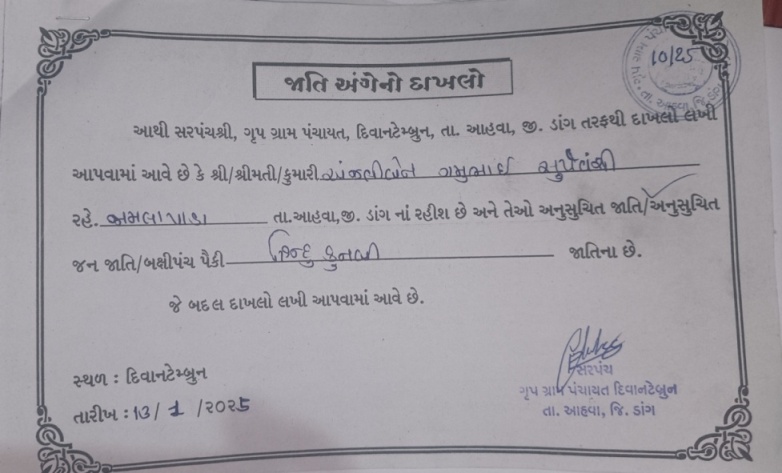 10/25
જાતિ અંગેનો દાખલો
આથી સરપંચશ્રી, ગૃપ ગ્રામ પંચાયત, દિવાનટેમ્બ્રુન, તા. આહવા, જી. ડાંગ તરફથી દાખલો લખી
આપવામાં આવે છે કે શ્રી/શ્રીમતી/કુમારી અંજલીબેન ગમુભાઈ સુર્યવંશી
રહે. જામલાપાડા તા.આહવા,જી. ડાંગ નાં રહીશ છે અને તેઓ અનુસુચિત જાતિ/અનુસુચિત
જન જાતિ/બક્ષીપંચ પૈકી હિન્દુ કુનબી જાતિના છે.
જે બદલ દાખલો લખી આપવામાં આવે છે.
સ્થળ : દિવાનટેમ્બ્રુન
તારીખ : 13/1/2025
સરપંચ
ગૃપ ગ્રામ પંચાયત દિવાનટેબ્રુન
તા. આહવા, જિ. ડાંગ